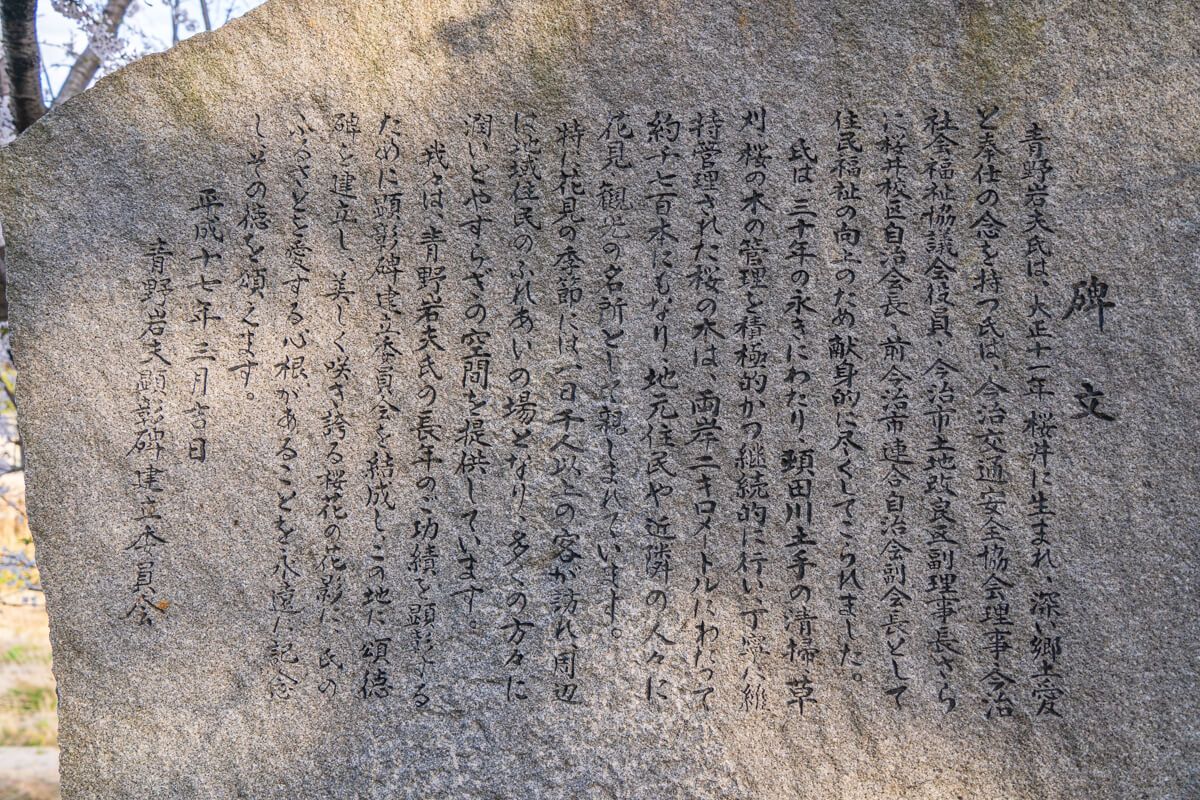 碑文
青野岩夫氏は、大正十一年桜井に生まれ、深い郷土愛
と奉仕の念を持つ氏は、今治交通安全協会理事今治
社会福祉協議会役員、今治市土地改良支副理事長さら
に桜井校区自治会長、前今治市連合自治会副会長として
住民福祉の向上のため献身的に尽くしてこられました。
氏は三十年の永きにわたり、頚田川土手の清掃草
刈桜の木の管理を積極的かつ継続的に行い丁寧な維
持管理された桜の木は、両岸二キロメートルにわたって
約千七百本にもなり、地元住民や近隣の人々に
花見観光の名所として親しまれています。
特に花見の季節には一日千人以上の客が訪れ、周辺
に地域住民のふれあいの場となり、多くの方々に
潤いとやすらぎの空間を提供しています。
我々は、青野岩夫氏の長年のご功績を顕彰する
ために顕彰碑建立委員会を結成し、この地に頌徳
碑を建立し、美しく咲き誇る桜花の花影に氏の
ふるさとを愛する心根があることを永遠に記念
し、その徳を頌えます。
平成十七年三月吉日
青野岩夫顕彰碑建立委員会